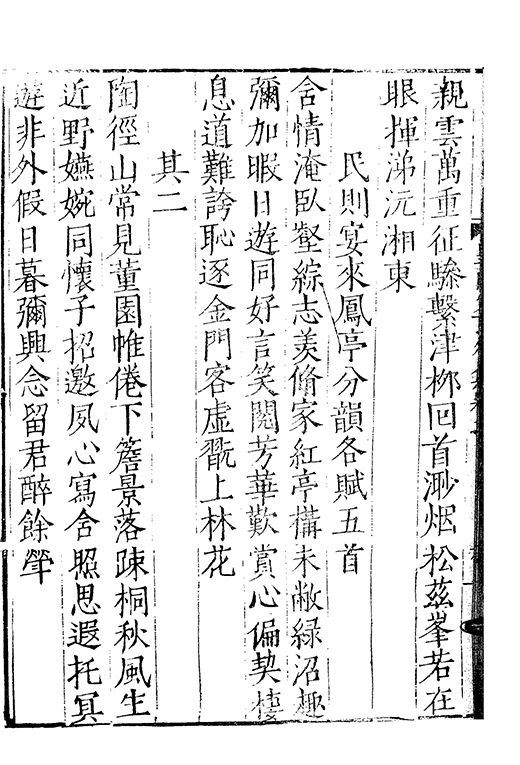 親雲萬重征驂繫津栁回首渺烟松茲峯若在
眼揮涕沅湘東
民則宴來鳳亭分韻各賦五首
含情淹臥壑綜志羡脩家紅亭構未敝緑沼趣
彌加暇日遊同好言笑閱芳華歎賞心偏契棲
息道難誇恥逐金門客虛翫上林花
其二
陶徑山常見董園帷倦下簷景落疎桐秋風生
近野嬿婉同懷子招邀夙心寫舍照思遐托冥
遊非外假日暮彌興念留君醉餘斚